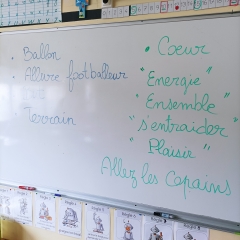 • Ballon
• Allure footballeur
Terrain
• Coeur
"Energie"
"Ensemble"
"s'entraider"
"Plaisir"
Allez les Copains